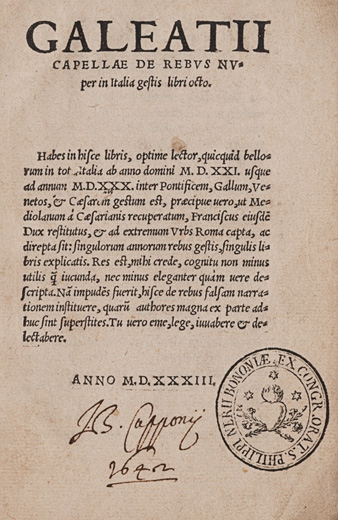 GALEATII
CAPELLAE DE REBVS NV-
per in Italia gestis libri octo.
Habes in hisce libris, optime lector, quicquid bello-
rum in tota Italia ab anno domini M. D. XXI. usque
ad annum M.D.XXX. inter Pontificem, Gallum, Ve-
netos, & Cæsarem gestum est, præcipue uero, ut Me-
diolanum á Cæsarianis recuperatum, Franciscus eiusdē
Dux restitutus, & ad extremum Vrbs Roma capta, ac
direpta sit: singulorum annorum rebus gestis, singulis li-
bris explicatis. Res est, mihi crede, cognitu non minus
utilis q̃ iucunda, nec minus eleganter quàm uere de-
scripta. Nā impudēs fuerit, hisce de rebus falsam narra-
tionem instituere, quarū authores magna ex parte ad-
huc sint superstites. Tu uero eme, lege, iuuabere & de-
lectabere.
ANNO M.D.XXXIII.
J.B. Capponij
1642
NERII BONONIÆ, EX CONGR. ORAT. S. PHILIPPI